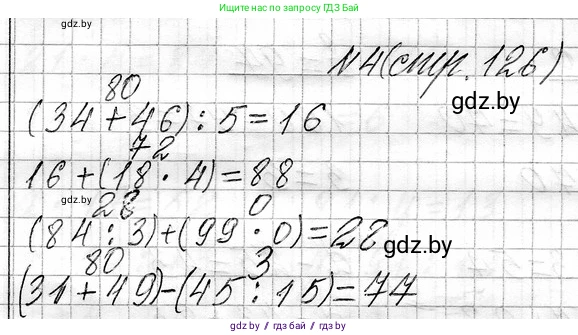 Ищите нас в поиске ГДЗ БАЙ
gdz.by
№4(стр. 126)
80
(34+46):5=16
gdz.by
72
16+(18·4)=88
gdz.by
28 0
(84:3)+(99·0)=28
gdz.by
80 3
(31+49)-(45:15)=77
gdz.by / гдз бай / gdz.by